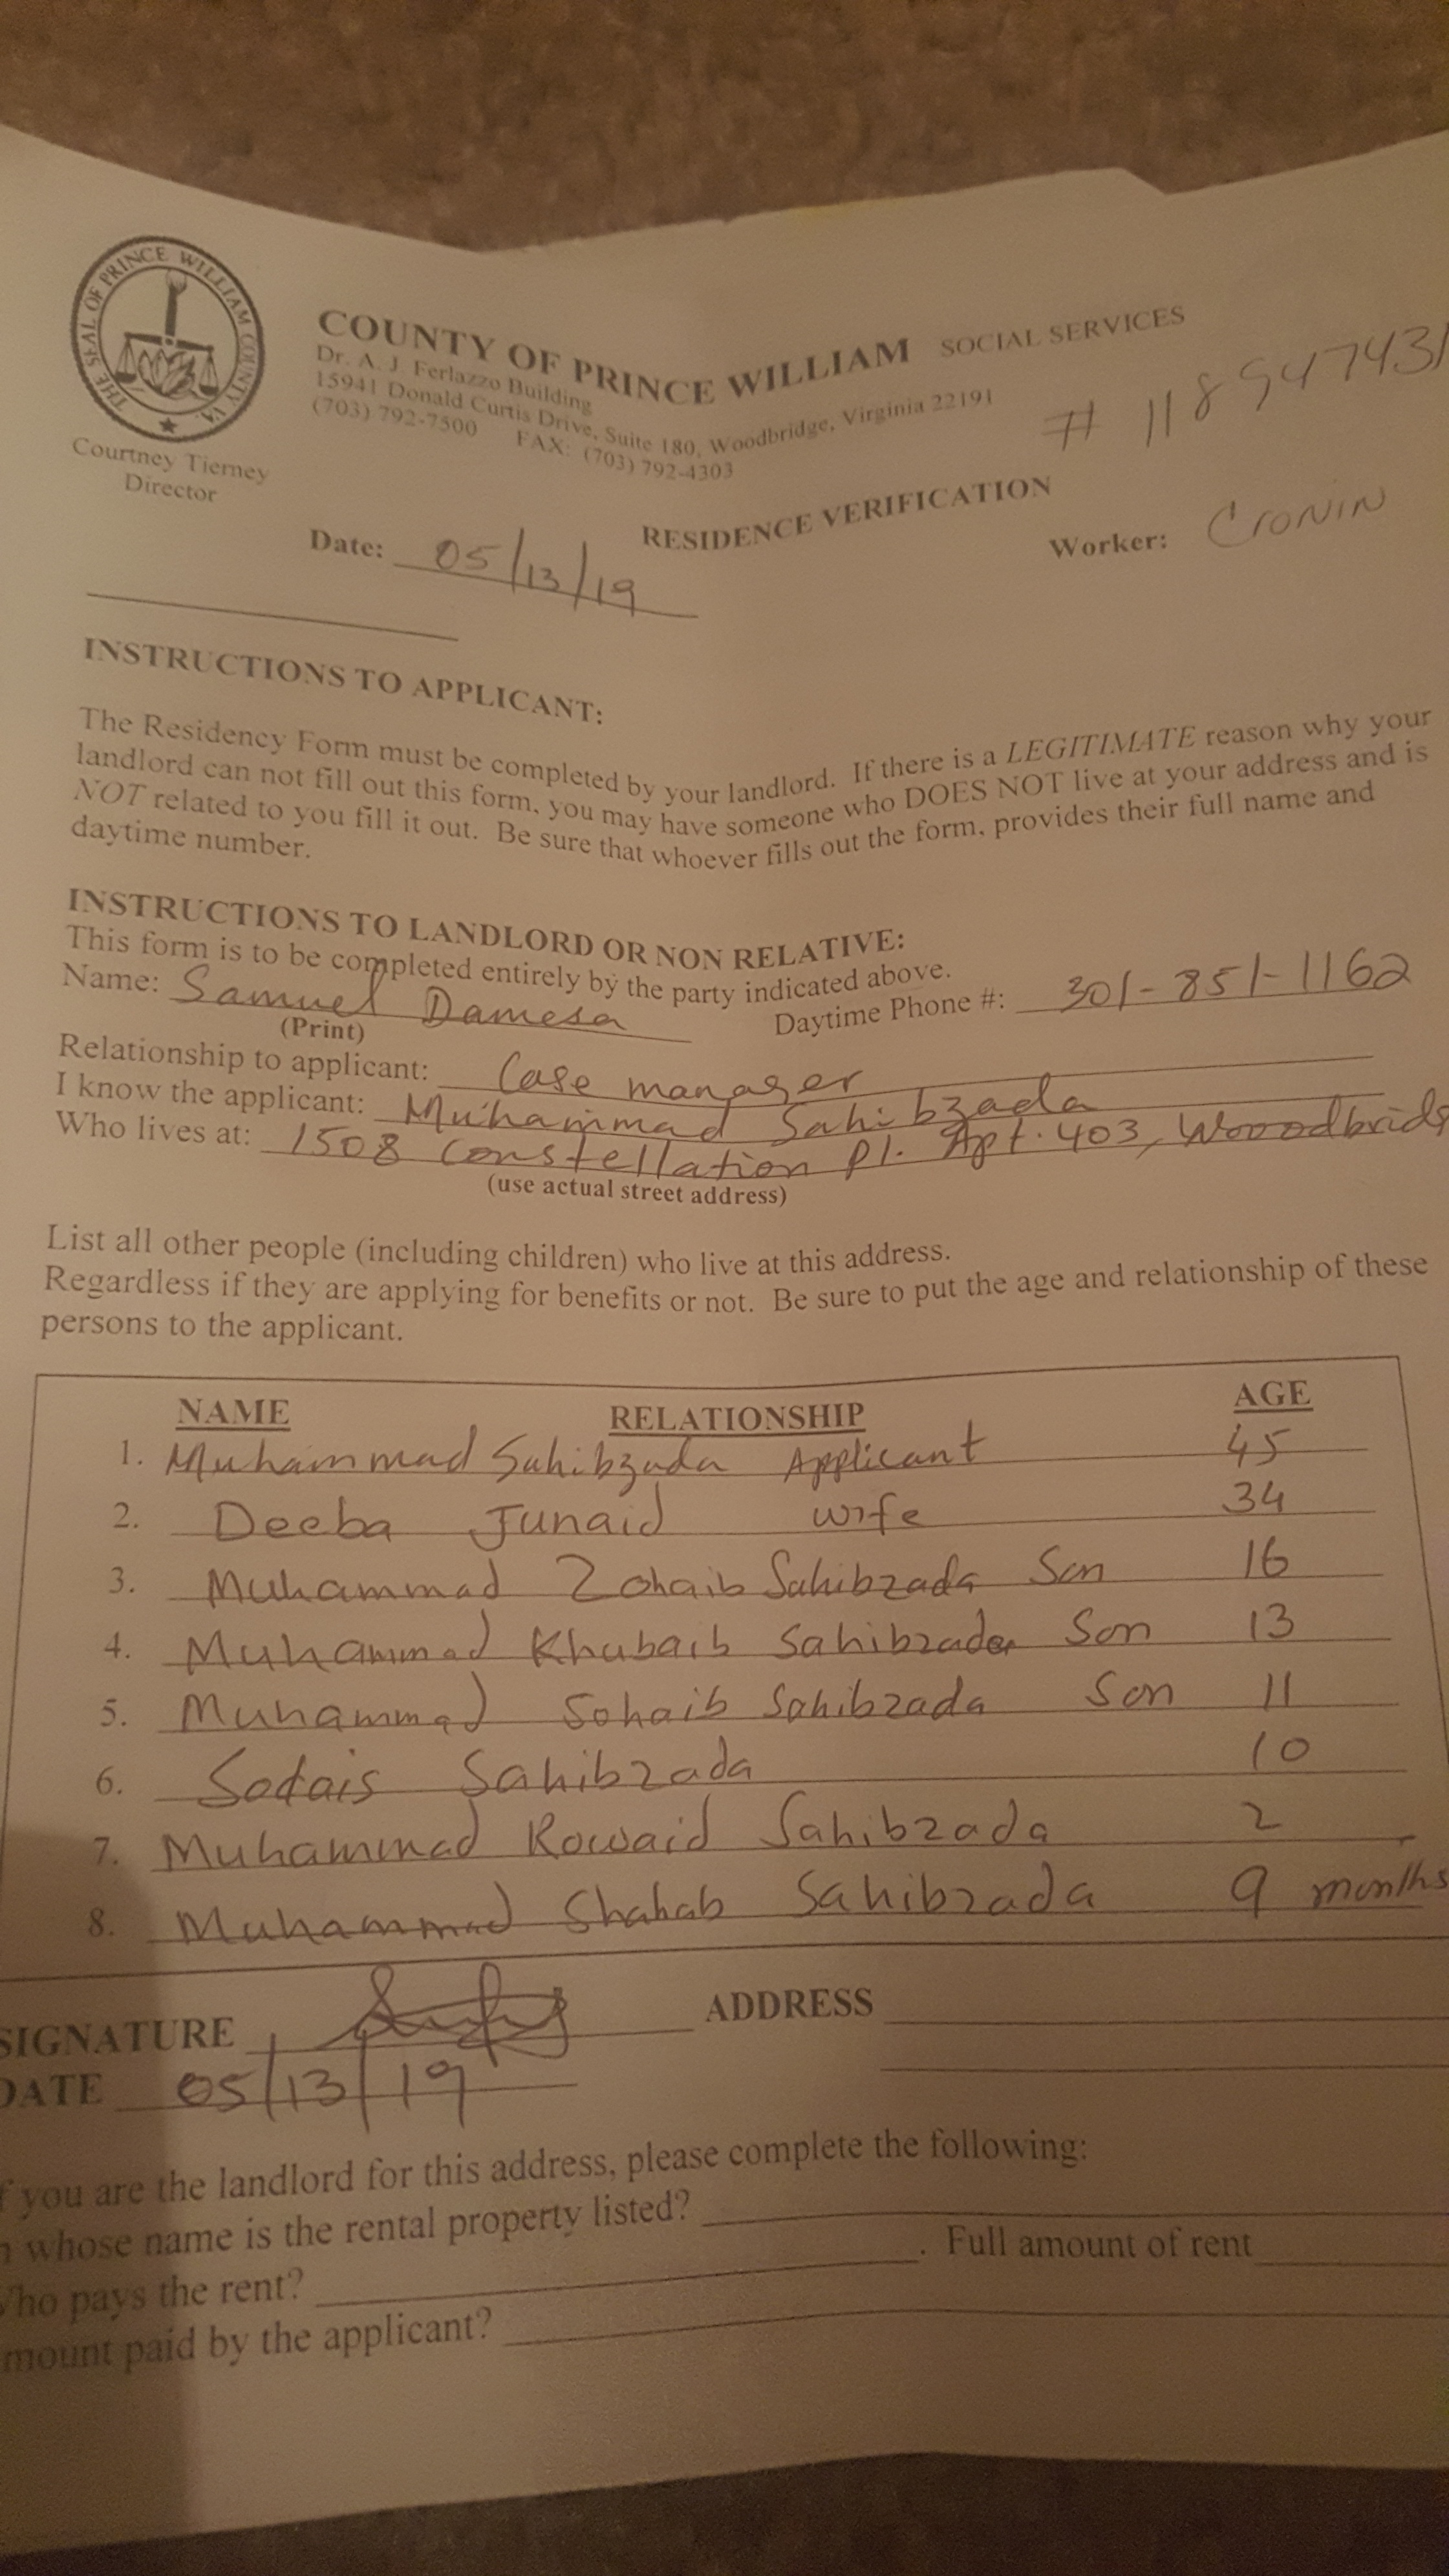 THE SEAL OF PRINCE WILLIAM COUNTY VA.
Courtney Tierney
Director
COUNTY OF PRINCE WILLIAM SOCIAL SERVICES
Dr. A. J. Ferlazzo Building
15941 Donald Curtis Drive, Suite 180, Woodbridge, Virginia 22191
(703) 792-7500 FAX: (703) 792-4303
# 118947431
RESIDENCE VERIFICATION
Date: 05/13/19
Worker: CRONIN
INSTRUCTIONS TO APPLICANT:
The Residency Form must be completed by your landlord. If there is a LEGITIMATE reason why your
landlord can not fill out this form, you may have someone who DOES NOT live at your address and is
NOT related to you fill it out. Be sure that whoever fills out the form, provides their full name and
daytime number.
INSTRUCTIONS TO LANDLORD OR NON RELATIVE:
This form is to be completed entirely by the party indicated above.
Name: Samuel Damesa Daytime Phone #: 301-851-1162
(Print)
Relationship to applicant: Case manager
I know the applicant: Muhammad Sahibzada
Who lives at: 1508 Constellation Pl. Apt. 403, Wooodbridg
(use actual street address)
List all other people (including children) who live at this address.
Regardless if they are applying for benefits or not. Be sure to put the age and relationship of these
persons to the applicant.
NAME RELATIONSHIP AGE
1. Muhammad Sahibzada Applicant 45
2. Deeba Junaid wife 34
3. Muhammad Zohaib Sahibzada Son 16
4. Muhammad Khubaib Sahibzada Son 13
5. Muhammad Sohaib Sahibzada Son 11
6. Sodais Sahibzada 10
7. Muhammad Rowaid Sahibzada 2
8. Muhammad Shahab Sahibzada 9 months
SIGNATURE ADDRESS
DATE 05/13/19
f you are the landlord for this address, please complete the following:
n whose name is the rental property listed?
Who pays the rent? . Full amount of rent
mount paid by the applicant?